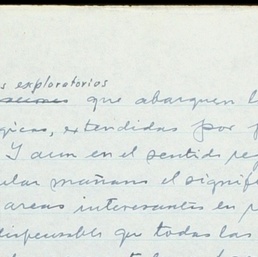 s exploratorios
que abarquen l
gicas, extendidas por f
Y aun en el sentido res
ular mañana el signifi
areas interesantes en p
dispensable que todas las